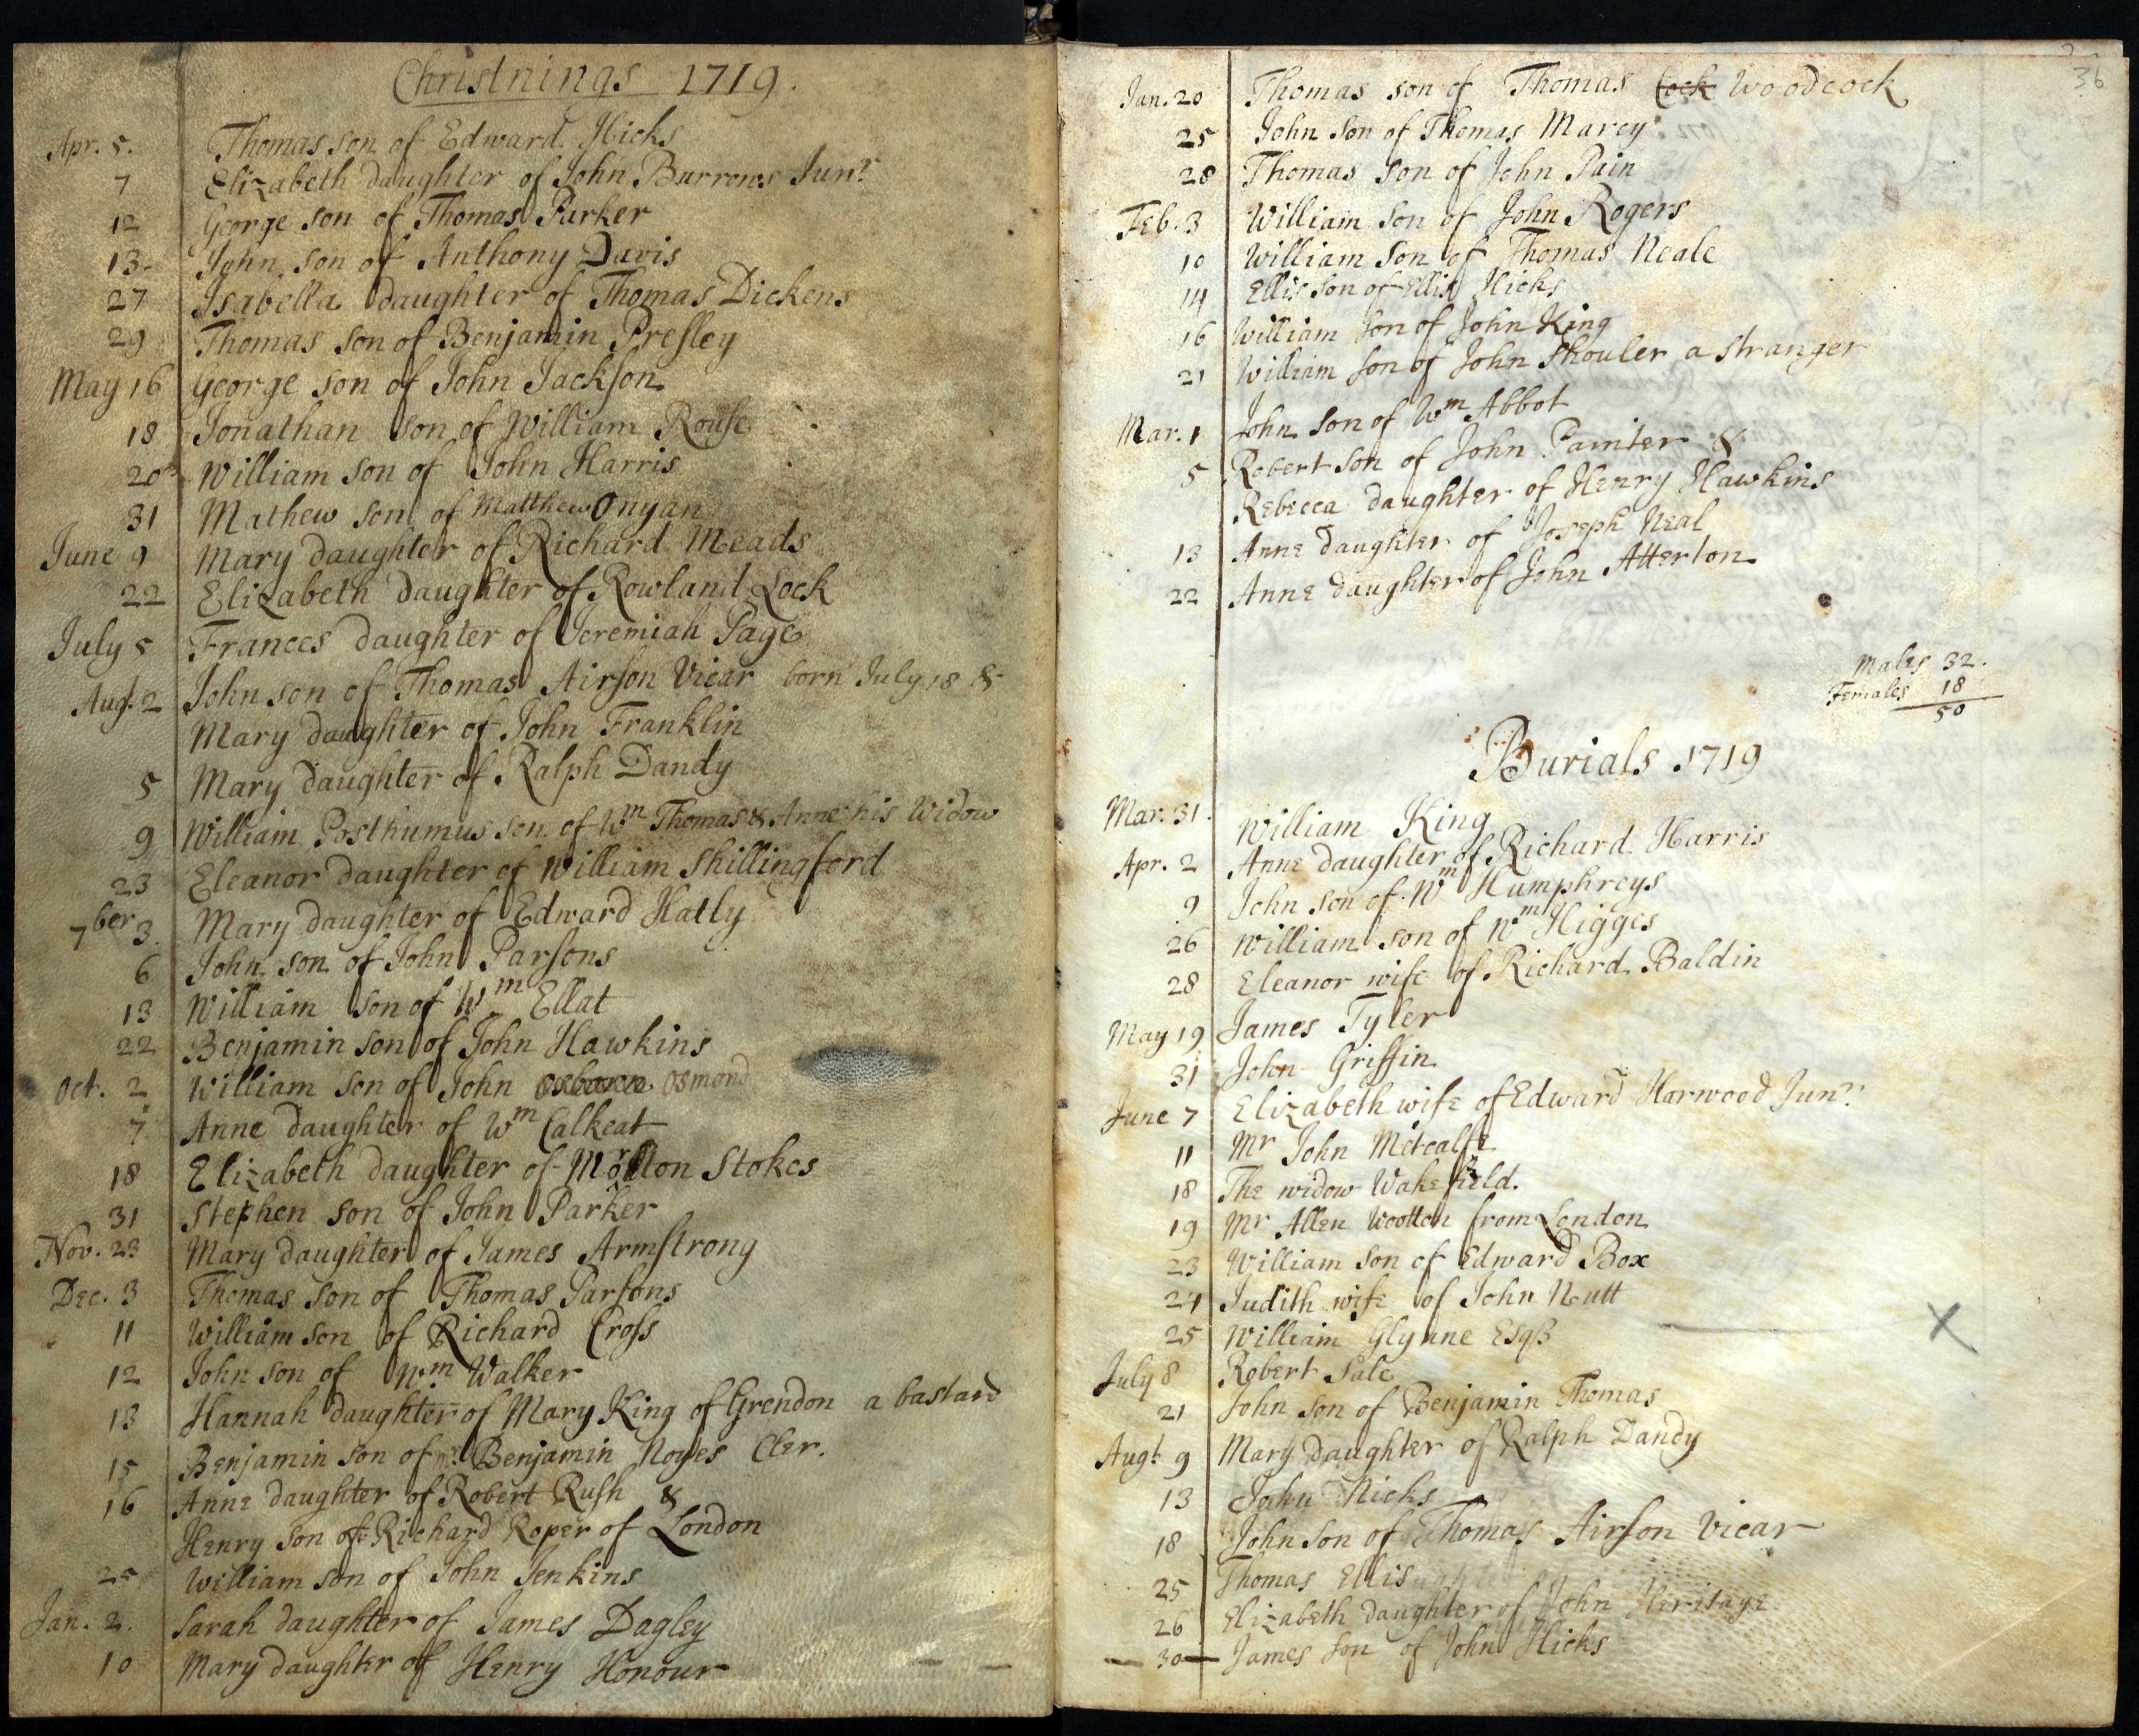 Christnings 1719.
Apr. 5. Thomas son of Edward Hicks
7 Elizabeth daughter of John Burrows Junr.
12 George son of Thomas Parker
13. John son of Anthony Davis
27 Isabella daughter of Thomas Dickens
29 Thomas son of Benjamin Presley
May 16 George son of John Jackson
18 Jonathan son of William Rouse
20 William son of John Harris
31 Mathew son of Matthew Onyan
June 9 Mary daughter of Richard Meads
22 Elizabeth daughter of Rowland Lock
July 5 Frances daughter of Jeremiah Page
Aug. 2 John son of Thomas Airson Vicar born July 18 &
Mary daughter of John Franklin
5 Mary daughter of Ralph Dandy
9 William Posthumus son of Wm Thomas & Anne his Widow
23 Eleanor daughter of William Shillingford
7ber 3. Mary daughter of Edward Hatly
6 John son of John Parsons
13 William son of Wm Ellat
22 Benjamin son of John Hawkins
Oct. 2 William son of John Osmond
7 Anne daughter of Wm Calkeat
18 Elizabeth daughter of Morton Stokes
31 Stephen son of John Parker
Nov. 23 Mary daughter of James Armstrong
Dec. 3 Thomas son of Thomas Parsons
11 William son of Richard Cross
12 John son of Wm Walker
13 Hannah daughter of Mary King of Grendon a bastard
15 Benjamin son of Mr. Benjamin Noyes Cler.
16 Anne daughter of Robert Rush &
Henry son of Richard Roper of London
25 William son of John Jenkins
Jan. 2. Sarah daughter of James Dagley
10 Mary daughter of Henry Honour
36
Jan. 20 Thomas son of Thomas Cock Woodcock
25 John son of Thomas Marcy
28 Thomas son of John Pain
Feb. 3 William son of John Rogers
10 William son of Thomas Neale
14 Ellis son of Ellis Hicks
16 William son of John King
21 William son of John Shouler a stranger
Mar. 1 John son of Wm Abbot
5 Robert son of John Painter &
Rebecca daughter of Henry Hawkins
13 Anne daughter of Joseph Neal
22 Anne daughter of John Atterton
Males 32.
Females 18
50
Burials 1719
Mar. 31. William King
Apr. 2 Anne daughter of Richard Harris
9 John son of Wm Humphreys
26 William son of Wm Higges
28 Eleanor wife of Richard Baldin
May 19 James Tyler
31 John Griffin
June 7 Elizabeth wife of Edward Harwood Junr.
11 Mr John Metcalfe
18 The widow Wakefield.
19 Mr Allen Wootton from London
23 William son of Edward Box
24 Judith wife of John Nutt
25 William Glynne Esqr
X
July 8 Robert Sale
21 John son of Benjamin Thomas
Augt. 9 Mary daughter of Ralph Dandy
13 John Hicks
18 John son of Thomas Airson Vicar
25 Thomas Ellis
26 Elizabeth daughter of John Heritage
30 James son of John Hicks